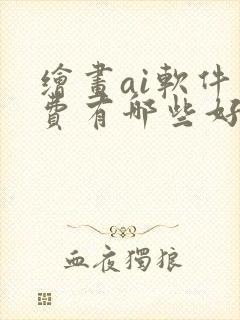 繪畫ai軟件
費有哪些好
血夜獨狼